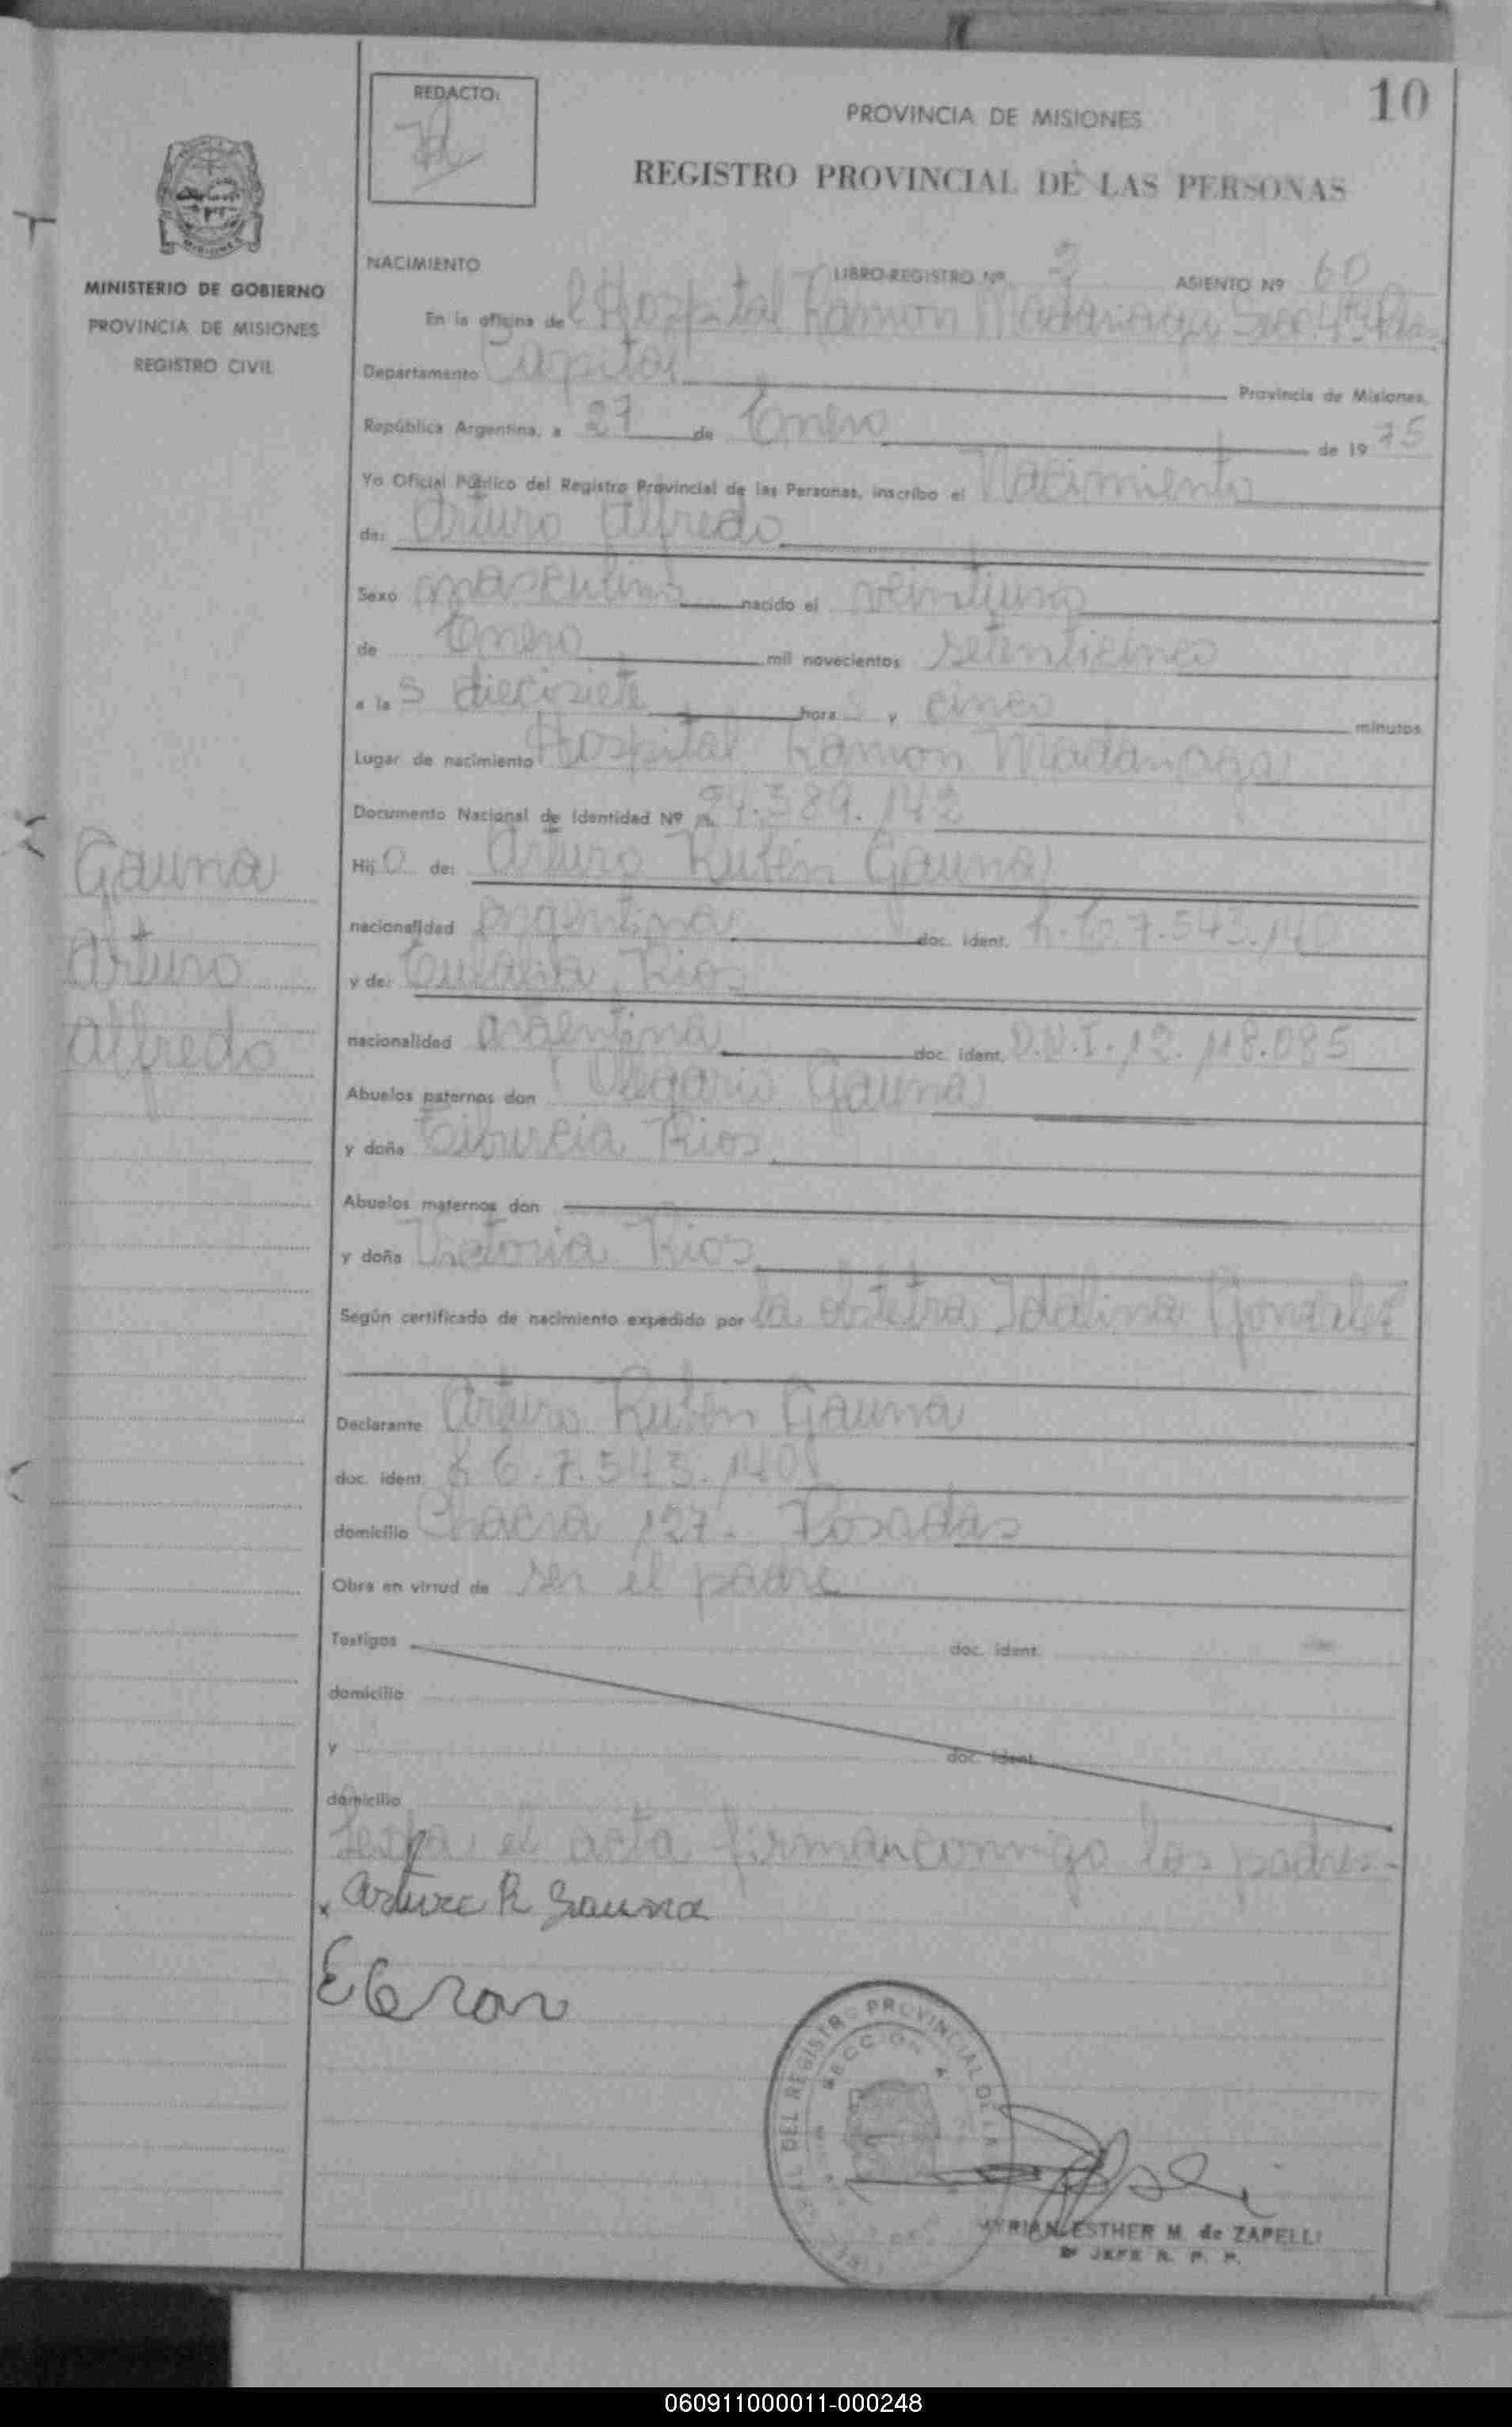 10
REDACTO:
PROVINCIA DE MISIONES
REGISTRO PROVINCIAL DE LAS PERSONAS
MISIONES
MINISTERIO DE GOBIERNO
PROVINCIA DE MISIONES
REGISTRO CIVIL
NACIMIENTO LIBRO-REGISTRO Nº 3 ASIENTO Nº 60
En la oficina del Hospital Ramon Madariaga Secc. 4ª
Departamento Capital Provincia de Misiones,
República Argentina, a 27 de Enero de 1975
Yo Oficial Público del Registro Provincial de las Personas, inscribo el Nacimiento
de: Arturo Alfredo
Sexo masculino nacido el veintiuno
de Enero mil novecientos setenticinco
a las diecisiete horas y cinco minutos
Lugar de nacimiento Hospital Ramon Madariaga
Documento Nacional de Identidad Nº 24.389.142
Hijo de: Arturo Rubén Gauna
nacionalidad argentina doc. ident. 7.543.140
y de: Eulalia Rios
nacionalidad argentina doc. ident. D.N.I. 12.118.085
Abuelos paternos don Olegario Gauna
y doña Tiburcia Rios
Abuelos maternos don
y doña Victoria Rios
Según certificado de nacimiento expedido por la obstetra Idalina Gonzalez
Declarante Arturo Rubén Gauna
doc. ident. 7.543.140
domicilio Chacra 127- Posadas
Obra en virtud de ser el padre
Testigos doc. ident.
domicilio
y doc. ident.
domicilio
Leida el acta firman conmigo los padres-
Gauna
Arturo
Alfredo
x Arturo R Gauna
DEL REGISTRO PROVINCIAL DE LA
SECCION 4
MYRIAN ESTHER M. de ZAPELLI
JEFE R. P. P.
060911000011-000248